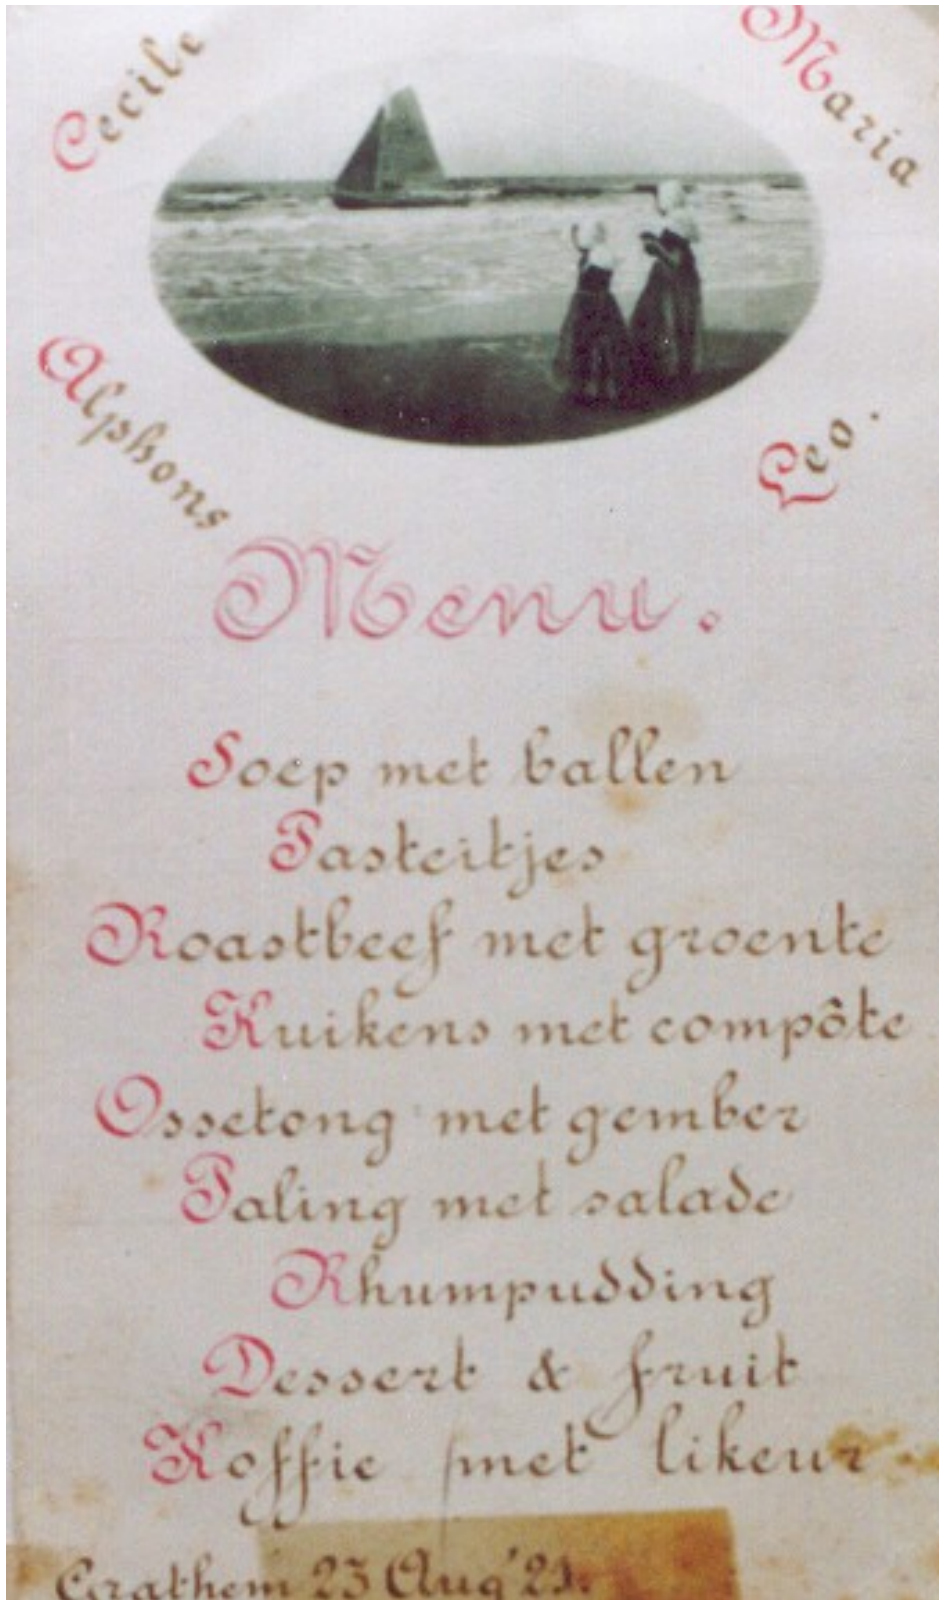 Cecile
Maria
Alphons
Leo.
Menu.
Soep met ballen
Pasteitjes
Roastbeef met groente
Kuikens met compôte
Ossetong met gember
Paling met salade
Rhumpudding
Dessert & fruit
Koffie met likeur
Grathem 23 Aug '21.